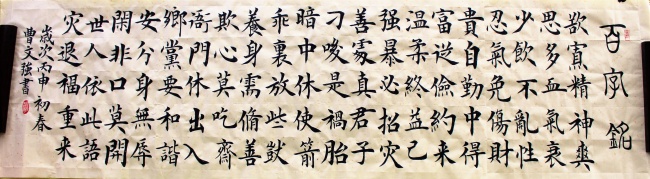 百字銘
欲寡精神爽
思多血氣衰
少飲不亂性
忍氣免傷財
貴自勤中得
富從儉約来
温柔終益己
强暴必招灾
善處真君子
刁唆是禍胎
暗中休使箭
乖裏放些獃
養身需脩善
欺心莫吃齋
衙門休出入
鄉黨要和諧
安分身無辱
閑非口莫開
世人依此語
灾退福重来
歲次丙申初春
曹文强書